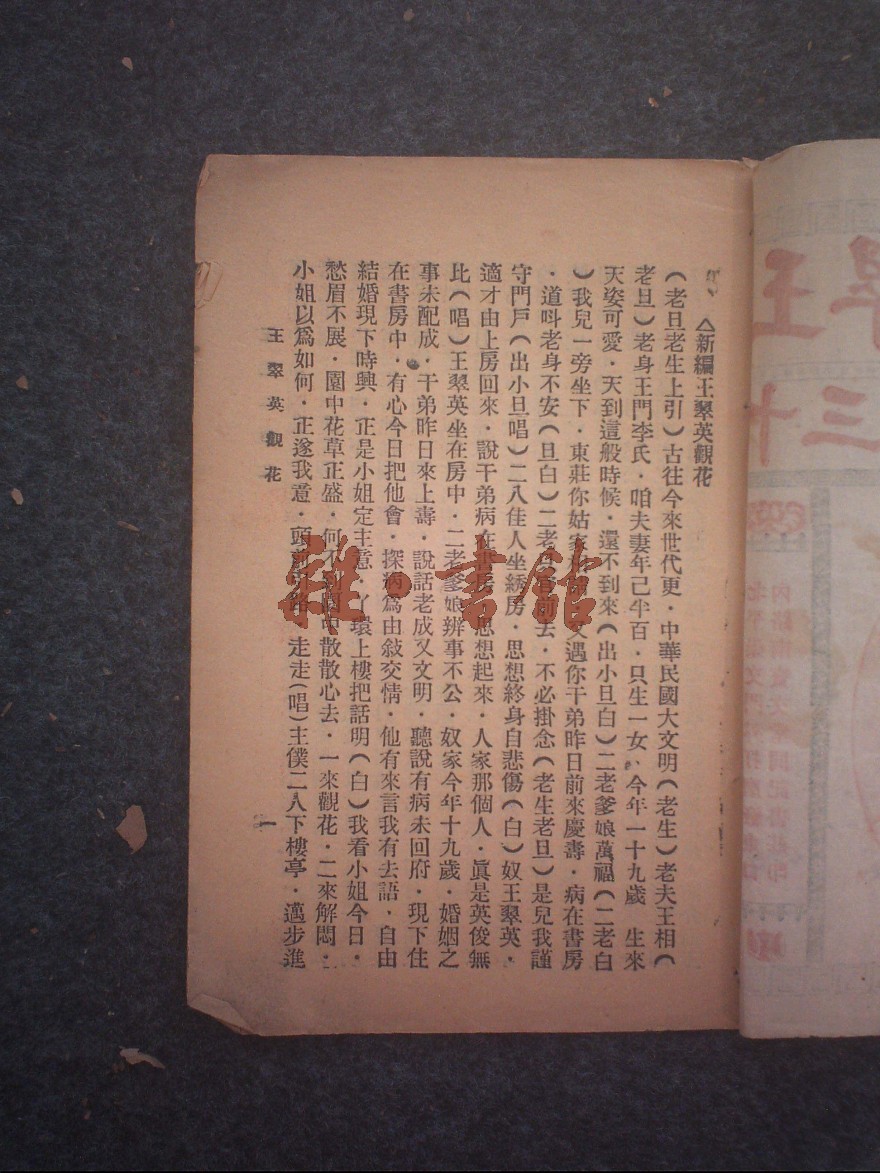 △新編王翠英觀花
(老旦老生上引)古往今來世代更·中華民國大文明(老生)老夫王相(
老旦)老身王門李氏·咱夫妻年己半百·只生一女、今年一十九歲 生來
天姿可愛·天到這般時候·還不到來(出小旦白)二老爹娘萬福(二老白
)我兒一旁坐下·東莊你姑家 又遇你干弟昨日前來慶壽·病在書房
·道呌老身不安(旦白)二老 去·不必掛念(老生老旦)是兒我謹
守門戶(出小旦唱)二八佳人坐綉房·思想終身自悲傷(白)奴王翠英·
適才由上房回來·說干弟病在書房·思想起來·人家那個人·眞是英俊無
比(唱)王翠英坐在房中·二老爹娘辨事不公·奴家今年十九歲·婚姻之
事未配成·干弟昨日來上壽·說話老成又文明·聽說有病未回府·現下住
在書房中·有心今日把他會·探病爲由敍交情·他有來言我有去語·自由
結婚現下時興·正是小姐定主意 丫環上樓把話明(白)我看小姐今日·
愁眉不展·園中花草正盛·何不到園中散散心去·一來觀花·二來解悶·
小姐以爲如何·正遂我意·頭前 路 走走(唱)主僕二人下樓亭·邁步進
王翠英觀花
一
雜·書館
王
三十